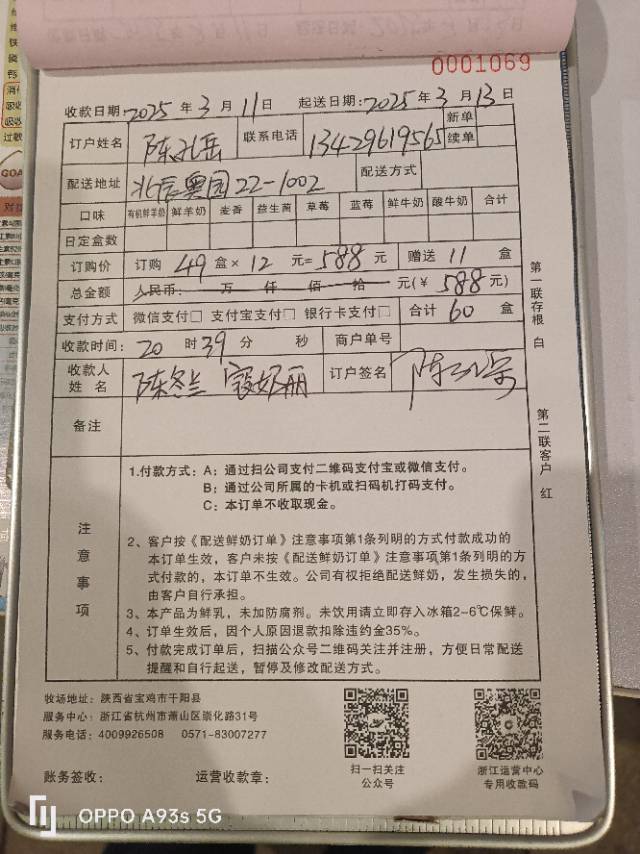 0001069
收款日期:2025年3月11日 起送日期:2025年3月13日
订户姓名 陈孔岳 联系电话 13429619565 新单 续单
配送地址 北辰奥园22-1002 配送方式
口味 有机鲜羊奶 鲜羊奶 麦香 益生菌 草莓 蓝莓 鲜牛奶 酸牛奶 合计
日定盒数
订购价 订购 49 盒×12 元=588 元 赠送 11 盒
总金额 人民币: 万 仟 佰 拾 元(¥ 588 元)
支付方式 微信支付□ 支付宝支付□ 银行卡支付□ 合计 60 盒
收款时间: 20 时 39 分 秒 商户单号
收款人姓名 陈冬兰 订户签名
备注
第一联存根 白
第二联客户 红
注意事项
1.付款方式:A:通过扫公司支付二维码支付宝或微信支付。
B:通过公司所属的卡机或扫码机打码支付。
C:本订单不收取现金。
2、客户按《配送鲜奶订单》注意事项第1条列明的方式付款成功的
本订单生效,客户未按《配送鲜奶订单》注意事项第1条列明的方
式付款的,本订单不生效。公司有权拒绝配送鲜奶,发生损失的,
由客户自行承担。
3、本产品为鲜乳,未加防腐剂。未饮用请立即存入冰箱2-6℃保鲜。
4、订单生效后,因个人原因退款扣除违约金35%。
5、付款完成订单后,扫描公众号二维码关注并注册,方便日常配送
提醒和自行起送,暂停及修改配送方式。
牧场地址:陕西省宝鸡市千阳县
服务中心:浙江省杭州市萧山区崇化路31号
服务电话:4009926508 0571-83007277
扫一扫关注
公众号
浙江运营中心
专用收款码
账务签收: 运营收款章:
OPPO A93s 5G